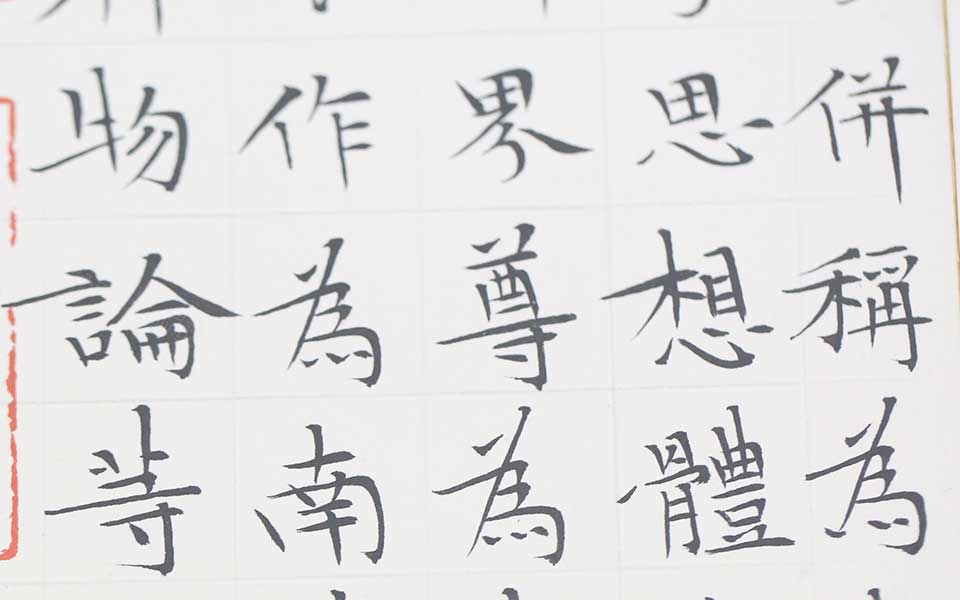 併稱為
思想體
界尊為
作為南
物論等